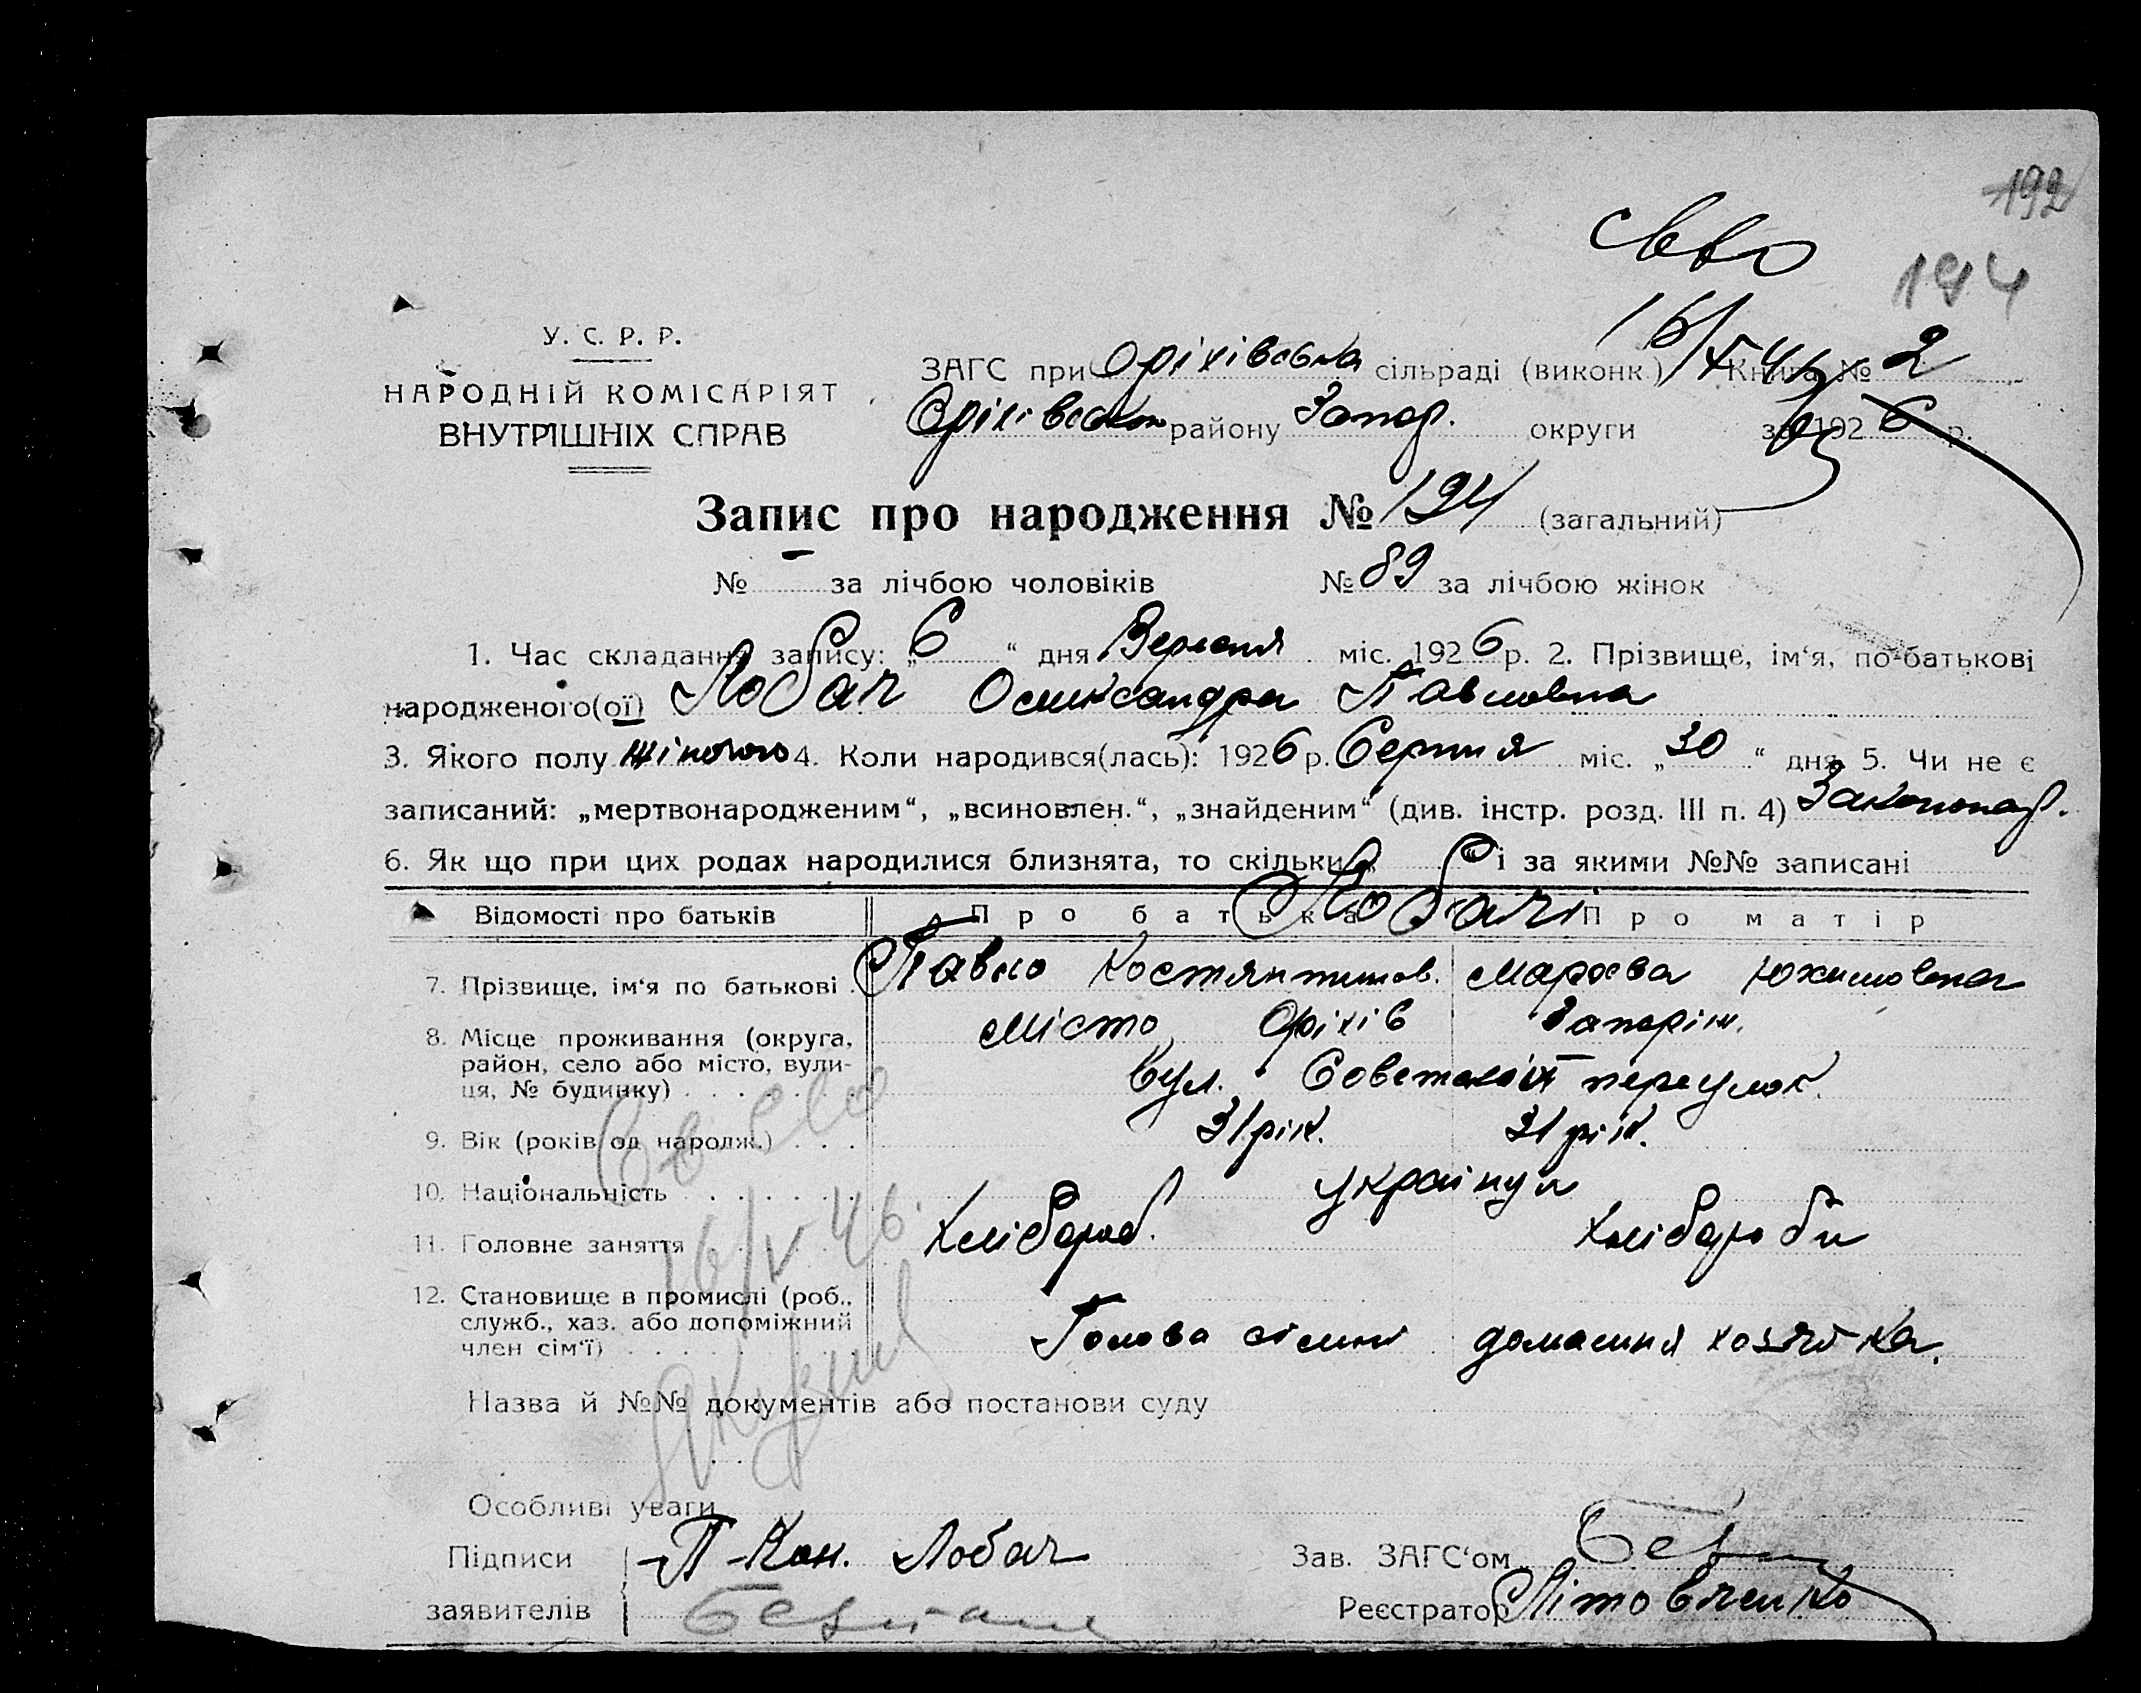 192
194
Св-во
16/V 46
У. С. Р. Р.
НАРОДНІЙ КОМІСАРІЯТ
ВНУТРІШНІХ СПРАВ
ЗАГС при Оріхівська сільраді (виконк.) Книга № 2
Оріхівськ району Запор. округи за 1926 р.
Запис про народження № 194 (загальний)
№ - за лічбою чоловіків № 89 за лічбою жінок
1. Час складання запису: „6“ дня Вересня міс. 1926 р. 2. Прізвище, ім‘я, по-батькові
народженого(ої) Лобач Олександра Павловна
3. Якого полу жіночого 4. Коли народився(лась): 1926 р. Серпня міс. „30“ дня 5. Чи не є
записаний: „мертвонародженим“, „всиновлен.“, „знайденим“ (див. інстр. розд. III п. 4) Законнонар.
6. Як що при цих родах народилися близнята, то скільки „ “ і за якими №№ записані
Відомості про батьків Про батька Лобачі Про матір
7. Прізвище, ім‘я по батькові . Павло Костянтинов. Марфа Юхимовна
8. Місце проживання (округа, місто Оріхів Запоріж.
район, село або місто, вули-
ця, № будинку) . . . . . . . вул. Советський переулок.
9. Вік (років од народж.) . . . 31 рік. 31 рік.
10. Національність . . . . . . . українци
11. Головне заняття . . . . . . Хлібороб. Хлібороби
12. Становище в промислі (роб.,
служб., хаз. або допоміжний
член сім‘ї) . . . . . . . . . Голова сімї домашня хозяйка.
Св-во
16/V 46.
Назва й №№ документів або постанови суду
Особливі уваги
Підписи П-Кон. Лобач Зав. ЗАГС‘ом
заявителів Реєстратор Літовченко